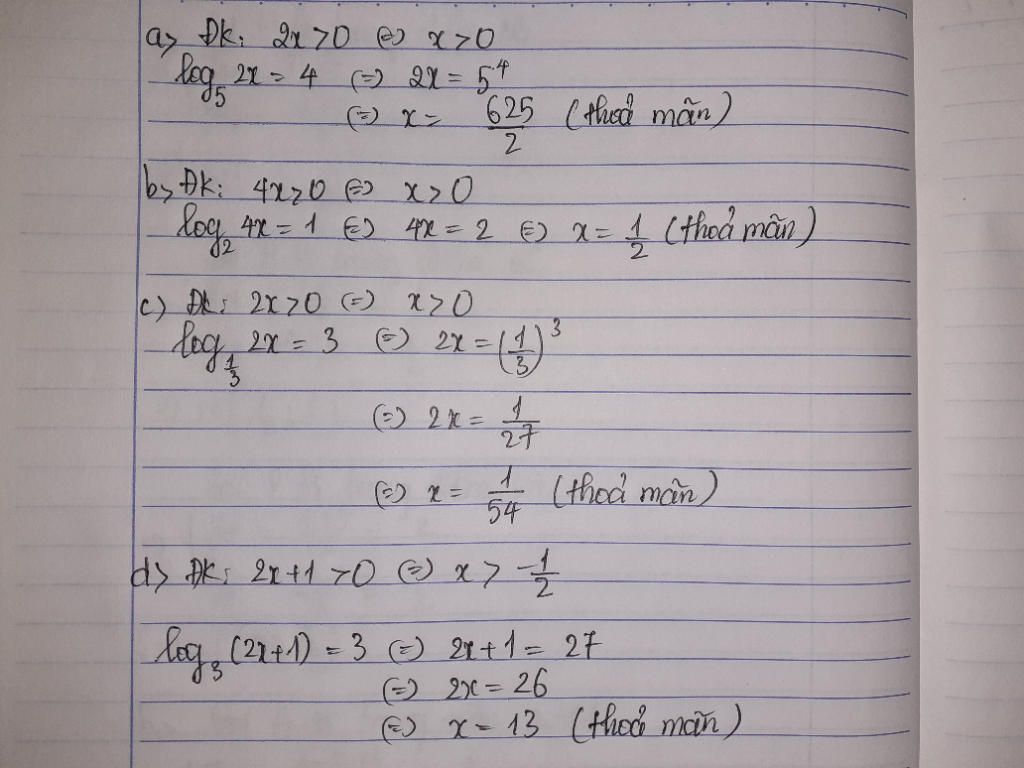 a> ĐK: 2x>0 (=) x>0
log₅ 2x = 4 (=) 2x = 5⁴
(=) x = 625/2 (thoả mãn)
b> ĐK: 4x>0 (=) x>0
log₂ 4x = 1 (=) 4x = 2 (=) x = 1/2 (thoả mãn)
c) ĐK: 2x>0 (=) x>0
log_{1/3} 2x = 3 (=) 2x = (1/3)³
(=) 2x = 1/27
(=) x = 1/54 (thoả mãn)
d> ĐK: 2x+1 >0 (=) x > -1/2
log₃ (2x+1) = 3 (=) 2x+1 = 27
(=) 2x = 26
(=) x = 13 (thoả mãn)